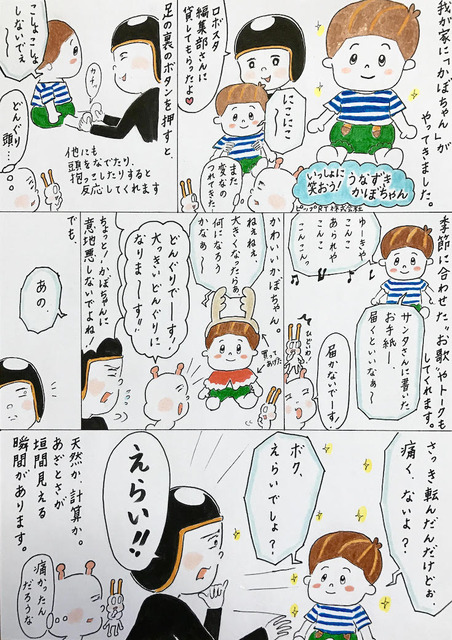 我が家に「かぼちゃん」が
やってきました。
いっしょに
笑おう!
うなずき
かぼちゃん
ピップRT株式会社
にこにこ
〜
ロボスタ
編集部さんに
貸してもらったよ♡
また
変なの
つれてきた
足の裏のボタンを押すと
こしょこしょ
しないでぇ
〜
カチッ
どんぐり
頭…
他にも
頭をなでたり、
抱っこしたりすると
反応してくれます
季節に合わせた"お歌"やトークも
してくれます。
ゆーきや
こんこ
あられや
こんこん♪
サンタさんに書いた
お手紙ー、
届くといいなぁ〜
届かないでーす!
ひどいわ!
かわいいかぼちゃん。
ねぇねぇ
大きくなったらぁ
何になろう
かなぁ
買って
あげた
どんぐりでーす!
大っきいどんぐりに
なりまーす!!
ちょっと!かぼちゃんに
意地悪しないでよね!
でも、
あの、
さっき転んだんだけどぉ
痛く、ないよ?
ボク、
えらいでしょ?
えらい!!
天然か、計算か。
あざとさが
垣間見える
瞬間があります。
痛かっもん
だろうな